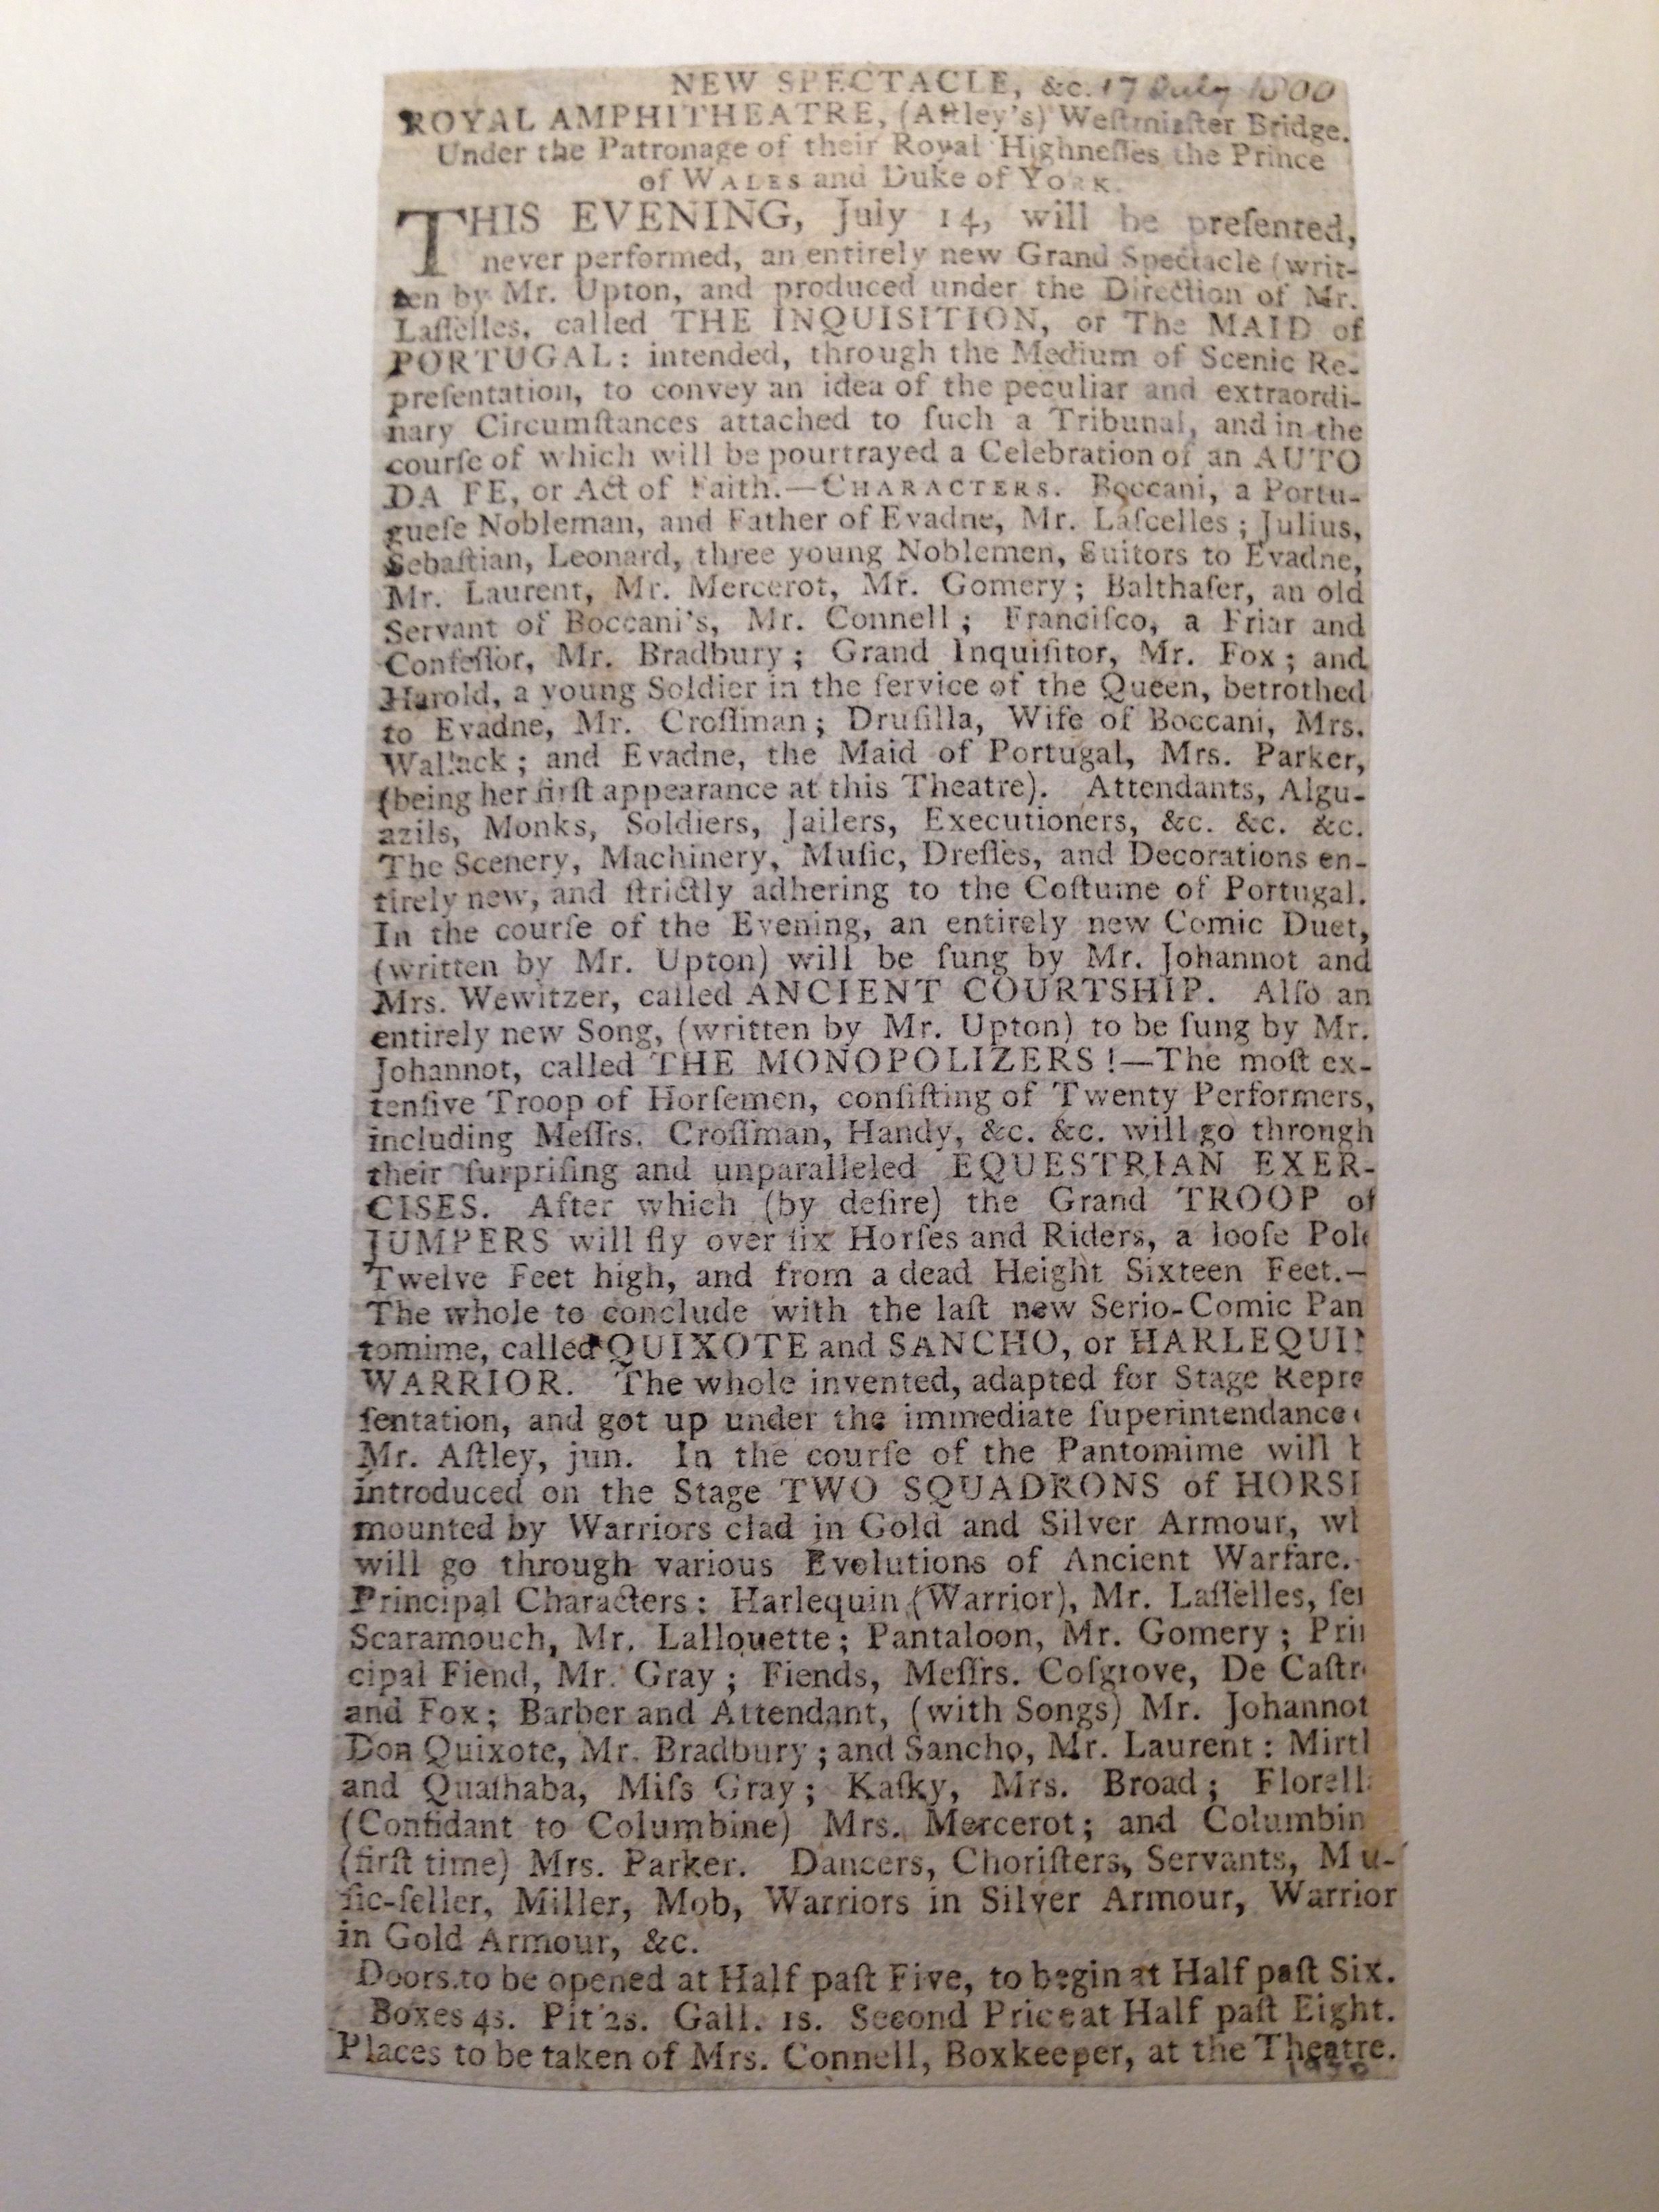 NEW SPECTACLE, &c. 17 July 1800
ROYAL AMPHITHEATRE, (Aſtley's) Weſtminſter Bridge.
Under the Patronage of their Royal Highneſſes the Prince
of WALES and Duke of YORK.
THIS EVENING, July 14, will be preſented,
never performed, an entirely new Grand Spectacle (writ-
ten by Mr. Upton, and produced under the Direction of Mr.
Laſſelles, called THE INQUISITION, or The MAID of
PORTUGAL: intended, through the Medium of Scenic Re-
preſentation, to convey an idea of the peculiar and extraordi-
nary Circumſtances attached to ſuch a Tribunal, and in the
courſe of which will be pourtrayed a Celebration of an AUTO
DA FE, or Act of Faith.—CHARACTERS. Boccani, a Portu-
gueſe Nobleman, and Father of Evadne, Mr. Laſcelles; Julius,
Sebaſtian, Leonard, three young Noblemen, Suitors to Evadne,
Mr. Laurent, Mr. Mercerot, Mr. Gomery; Balthaſer, an old
Servant of Boccani's, Mr. Connell; Franciſco, a Friar and
Confeſſor, Mr. Bradbury; Grand Inquiſitor, Mr. Fox; and
Harold, a young Soldier in the ſervice of the Queen, betrothed
to Evadne, Mr. Croſſman; Druſilla, Wife of Boccani, Mrs.
Wallack; and Evadne, the Maid of Portugal, Mrs. Parker,
(being her firſt appearance at this Theatre). Attendants, Algu-
azils, Monks, Soldiers, Jailers, Executioners, &c. &c. &c.
The Scenery, Machinery, Muſic, Dreſſes, and Decorations en-
tirely new, and ſtrictly adhering to the Coſtume of Portugal.
In the courſe of the Evening, an entirely new Comic Duet,
(written by Mr. Upton) will be ſung by Mr. Johannot and
Mrs. Wewitzer, called ANCIENT COURTSHIP. Alſo an
entirely new Song, (written by Mr. Upton) to be ſung by Mr.
Johannot, called THE MONOPOLIZERS!—The moſt ex-
tenſive Troop of Horſemen, conſiſting of Twenty Performers,
including Meſſrs. Croſſman, Handy, &c. &c. will go through
their ſurpriſing and unparalleled EQUESTRIAN EXER-
CISES. After which (by deſire) the Grand TROOP of
JUMPERS will fly over ſix Horſes and Riders, a looſe Pole
Twelve Feet high, and from a dead Height Sixteen Feet.—
The whole to conclude with the laſt new Serio-Comic Pan
tomime, called QUIXOTE and SANCHO, or HARLEQUIN
WARRIOR. The whole invented, adapted for Stage Repre
ſentation, and got up under the immediate ſuperintendance
Mr. Aſtley, jun. In the courſe of the Pantomime will b
introduced on the Stage TWO SQUADRONS of HORSE
mounted by Warriors clad in Gold and Silver Armour, wh
will go through various Evolutions of Ancient Warfare.
Principal Characters: Harlequin (Warrior), Mr. Laſſelles, ſen
Scaramouch, Mr. Lallouette; Pantaloon, Mr. Gomery; Prin
cipal Fiend, Mr. Gray; Fiends, Meſſrs. Coſgrove, De Caſtro
and Fox; Barber and Attendant, (with Songs) Mr. Johannot
Don Quixote, Mr. Bradbury; and Sancho, Mr. Laurent: Mirtl
and Quaſhaba, Miſs Gray; Kaſky, Mrs. Broad; Florella
(Confidant to Columbine) Mrs. Mercerot; and Columbin
(firſt time) Mrs. Parker. Dancers, Choriſters, Servants, Mu-
ſic-ſeller, Miller, Mob, Warriors in Silver Armour, Warrior
in Gold Armour, &c.
Doors to be opened at Half paſt Five, to begin at Half paſt Six.
Boxes 4s. Pit 2s. Gall. 1s. Second Price at Half paſt Eight.
Places to be taken of Mrs. Connell, Boxkeeper, at the Theatre.